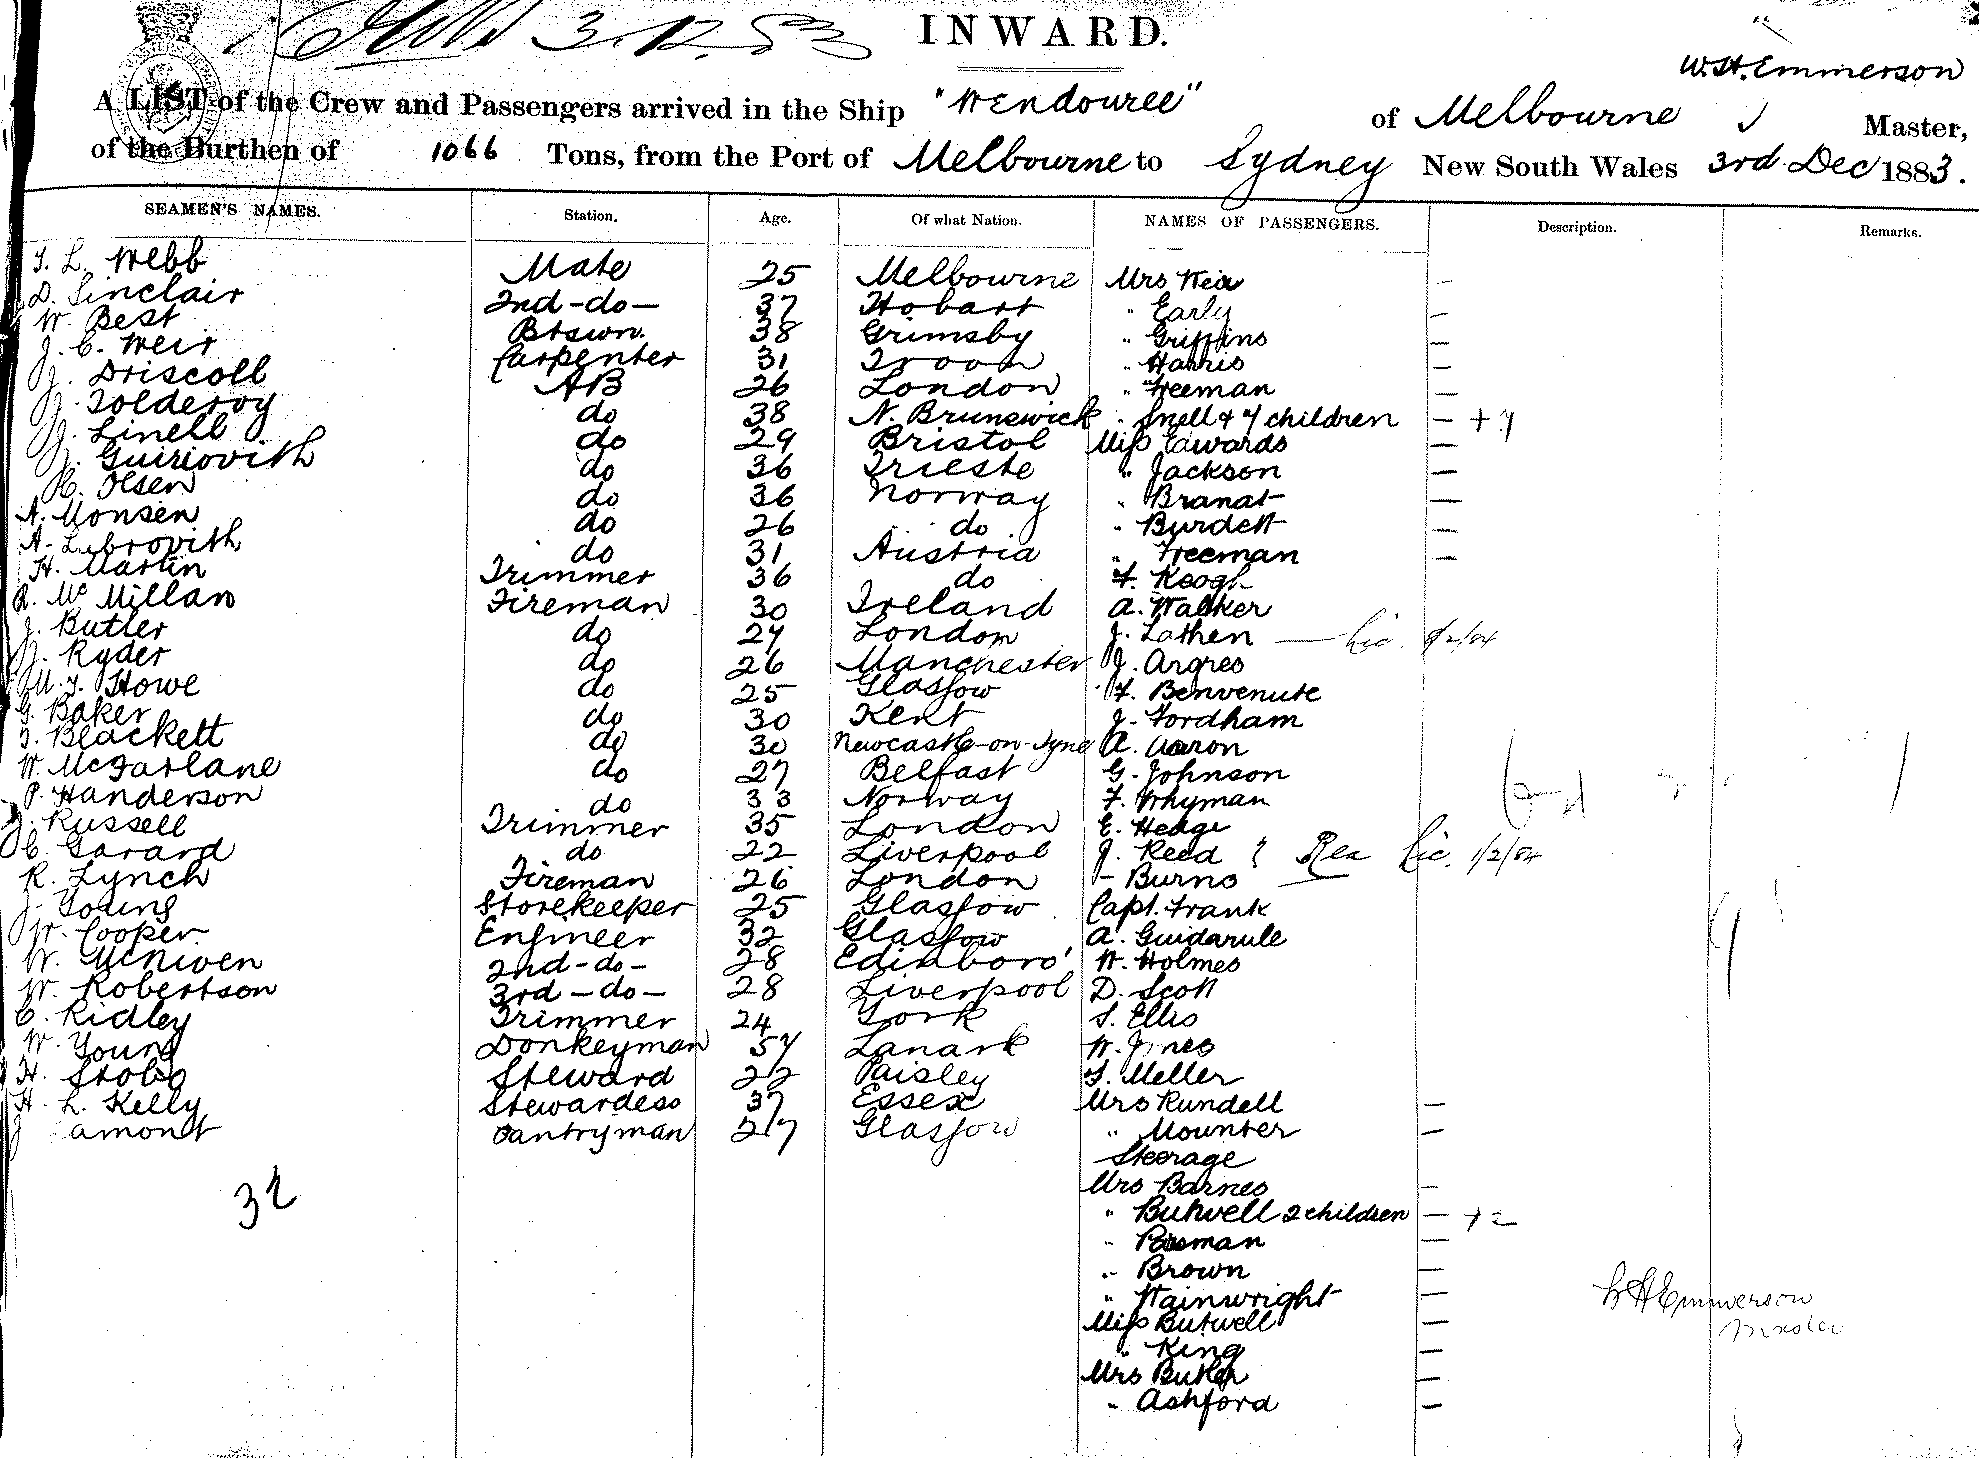 3.12.83
INWARD.
W. H. Emmerson
A LIST of the Crew and Passengers arrived in the Ship "Wendouree" of Melbourne Master,
of the Burthen of 1066 Tons, from the Port of Melbourne to Sydney New South Wales 3rd Dec 1883.
SEAMEN'S NAMES. Station. Age. Of what Nation. NAMES OF PASSENGERS. Description. Remarks.
T. L. Webb Mate 25 Melbourne Mrs Weir —
D. Sinclair 2nd -do- 37 Hobart " Early —
W. Best Btswn. 38 Grimsby " Griffins —
J. C. Weir Carpenter 31 Troon " Harris —
J. Driscoll AB 26 London " Freeman —
J. Tolderoy do 38 N. Brunswick " Snell & 4 children — + 4
J. Linell do 29 Bristol Miss Edwards —
J. Guiriovith do 36 Trieste " Jackson —
H. Olsen do 36 Norway " Branat —
A. Monsen do 26 do " Burdett —
A. Lubrovith do 31 Austria " Freeman —
H. Martin Trimmer 36 do F. Keogh
R. Mc Millan Fireman 30 Ireland A. Walker
J. Butler do 24 London J. Lathen — Lic.
J. Ryder do 26 Manchester J. Argres
M. J. Howe do 25 Glasgow F. Benvenute
G. Baker do 30 Kent J. Fordham
T. Blackett do 30 Newcastle-on-Tyne A. Aaron
W. McFarlane do 27 Belfast G. Johnson
P. Handerson do 33 Norway F. Whyman
J. Russell Trimmer 35 London E. Hedge
C. Garard do 22 Liverpool J. Reed Lic. 1/2/84
R. Lynch Fireman 26 London - Burns
J. Young Storekeeper 25 Glasgow Capt. Frank
W. Cooper Engineer 32 Glasgow A. Guidarule
W. McNiven 2nd -do- 28 Edinboro' W. Holmes
W. Robertson 3rd -do- 28 Liverpool D. Scott
C. Ridley Trimmer 24 York S. Ellis
W. Young Donkeyman 54 Lanark W. Jones
H. Stobo Steward 22 Paisley S. Meller
H. L. Kelly Stewardess 37 Essex Mrs Rundell —
J amont Pantryman 27 Glasgow " Mounter —
Steerage
32
Mrs Barnes —
" Butwell 2 children — + 2
" —
" Brown —
" Wainwright —
Miss Butwell —
" King —
Mrs Butler —
" Ashford —
W H Emmerson
Master